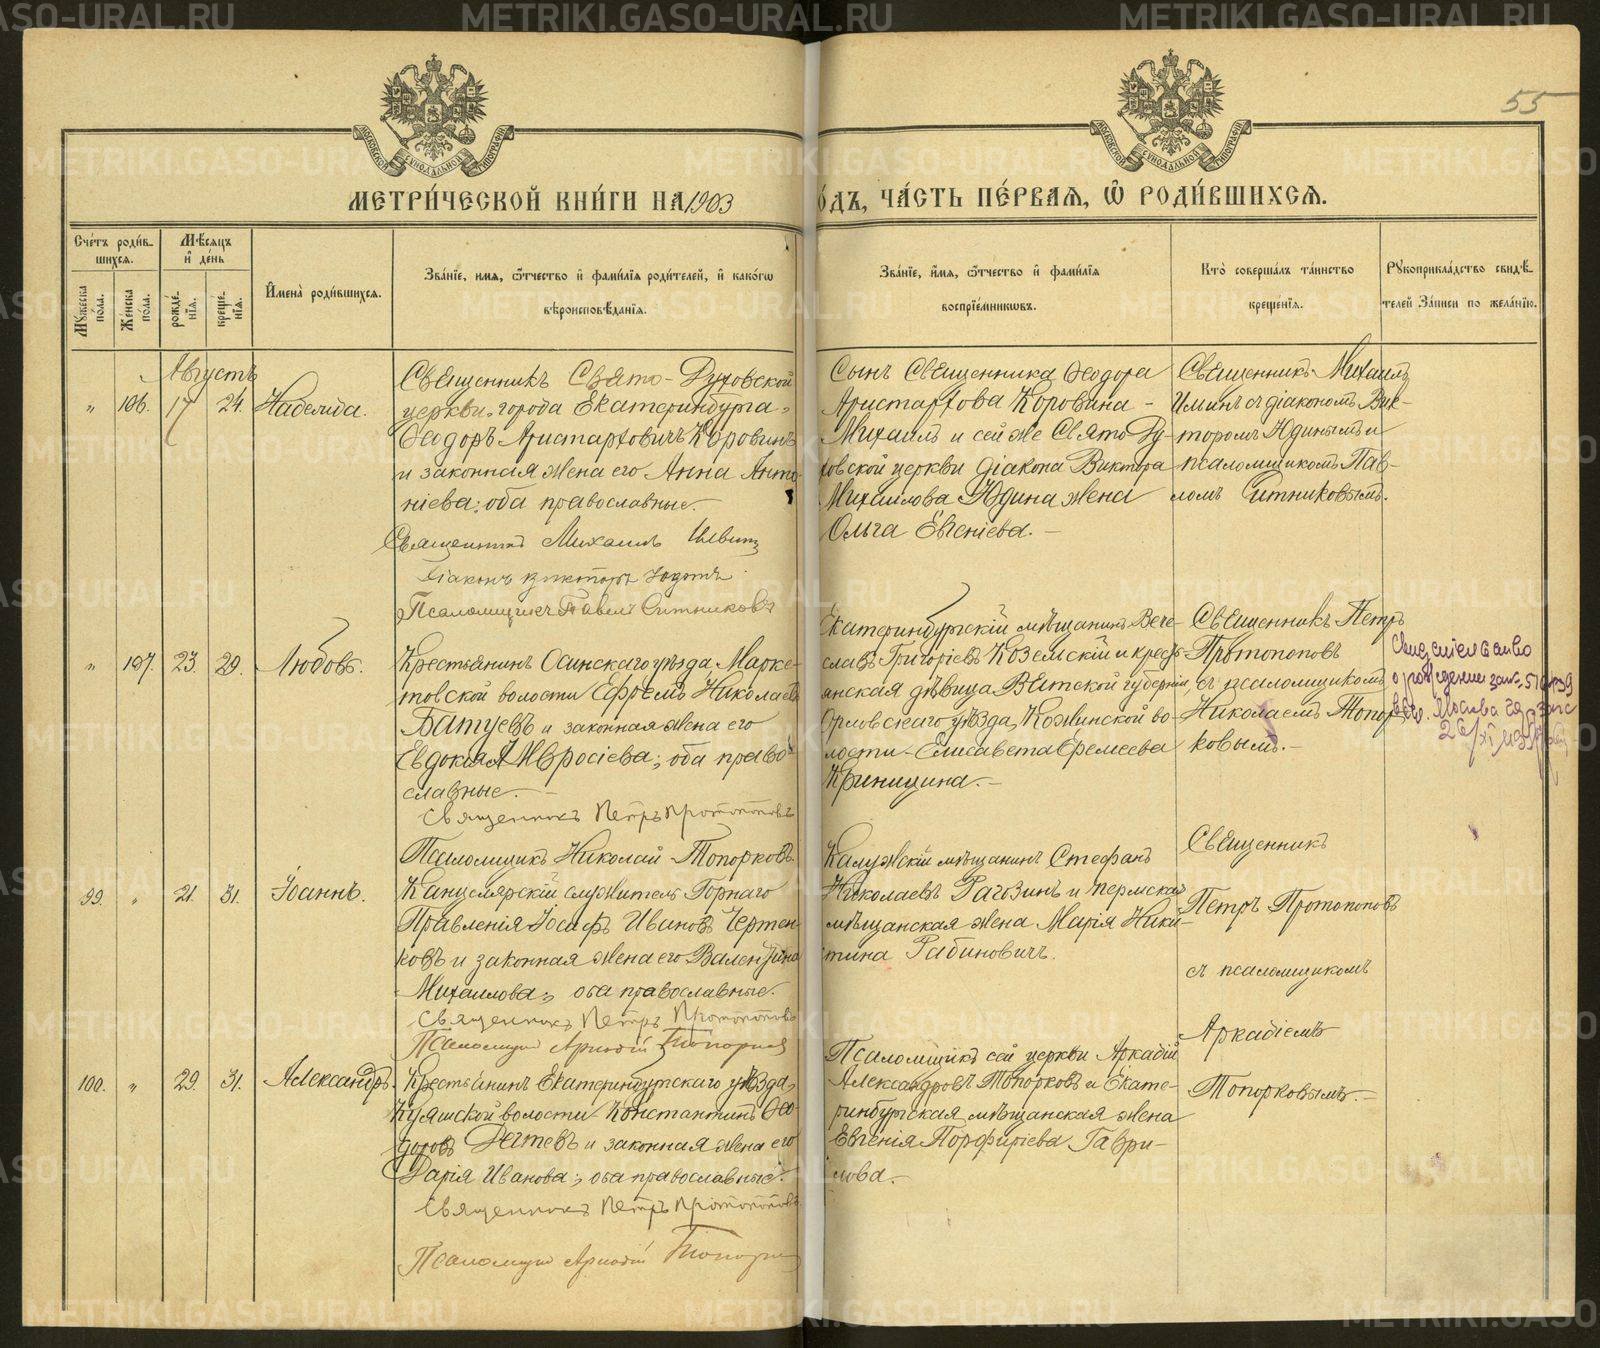 55
МЕТРИ́ЧЕСКОЙ КНИ́ГИ НА 1903
ГО́ДЪ, ЧА́СТЬ ПЕ́РВАѦ, Ѡ҆ РОДИ́ВШИХСѦ.
Сче́тъ роди́в-
шихсѧ.
Мꙋ́жеска по́ла.
Же́нска по́ла.
Мѣ́сѧцъ и҆ де́нь
рожде́-
нїѧ.
креще́-
нїѧ.
И҆мена̀ роди́вшихсѧ.
Зва́нїе, имѧ, ѻ҆́тчество и҆ фами́лїѧ роди́телей, и҆ како́гѡ
вѣроисповѣ́данїѧ.
Зва́нїе, и҆́мѧ, ѻ҆́тчество и҆ фами́лїѧ
воспрїе́мникѡвъ.
Кто̀ соверша́лъ та́инство
креще́нїѧ.
Рꙋкоприкла́дство свидѣ́-
телей За́писи по жела́нїю.
Августъ
" 106. 17 24. Надежда.
Священникъ Свято-Духовской
церкви города Екатеринбурга
Ѳеодоръ Аристарховичъ Коровинъ
и законная жена его Анна Анто-
ніева; оба православные.
Священникъ Михаилъ
Діаконъ Викторъ Юдинъ
Псаломщикъ Павелъ Ситниковъ
Сынъ Священника Ѳеодора
Аристархова Коровина -
Михаилъ и сей же Свято Ду-
ховской церкви діакона Виктора
Михаилова Юдина жена
Ольга Евгеніева. -
Священникъ Михаилъ
съ діакономъ Вик-
торомъ Юдинымъ и
псаломщикомъ Пав-
ломъ Ситниковымъ.
" 107. 23. 29. Любовь.
Крестьянинъ Осинскаго уѣзда, Марке-
товской волости Ефремъ Николаевъ
Батуевъ и законная жена его
Евдокія Амвросіева; оба право-
славные. -
Священникъ Петръ Протопоповъ
Псаломщикъ Николай Топорковъ.
Екатеринбургскій мѣщанинъ Вяче-
славъ Григоріевъ Коземскій и кресть-
янская дѣвица Вятской губерніи,
Орловскаго уѣзда, Кожинской во-
лости - Елисавета Еремеева
Криницина. -
Священникъ Петръ
Протопоповъ
съ псаломщикомъ
Николаемъ Топор-
ковымъ. -
Свидетельство
о рождении
99. " 21. 31. Іоаннъ.
Канцелярскій служитель Горнаго
Правленія Іосифъ Ивановъ Чертен-
ковъ и законная жена его Валентина
Михаилова; оба православные.
Священникъ Петръ Протопоповъ
Псаломщикъ Аркадій Топорковъ
Калужскій мѣщанинъ Стефанъ
Николаевъ Рагозинъ и пермская
мѣщанская жена Марія Ники-
тина Рабиновичъ.
Священникъ
Петръ Протопоповъ
съ псаломщикомъ
Аркадіемъ
Топорковымъ. -
100. " 29. 31. Александръ.
Крестьянинъ Екатеринбугскаго уѣзда,
волости Константинъ Ѳео-
доровъ и законная жена его
Дарія Иванова; оба православные.
Священникъ Петръ Протопоповъ
Псаломщикъ Аркадій Топорковъ
Псаломщикъ сей церкви Аркадій
Александровъ Топорковъ и Екате-
ринбургская мѣщанская жена
Евгенія Порфиріева Гаври-
лова. -
METRIKI.GASO-URAL.RU